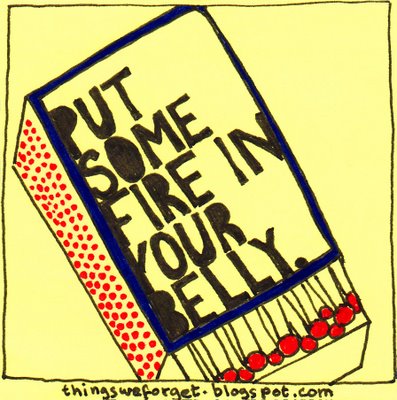 PUT
SOME
FIRE IN
YOUR
BELLY.
thingsweforget.blogspot.com